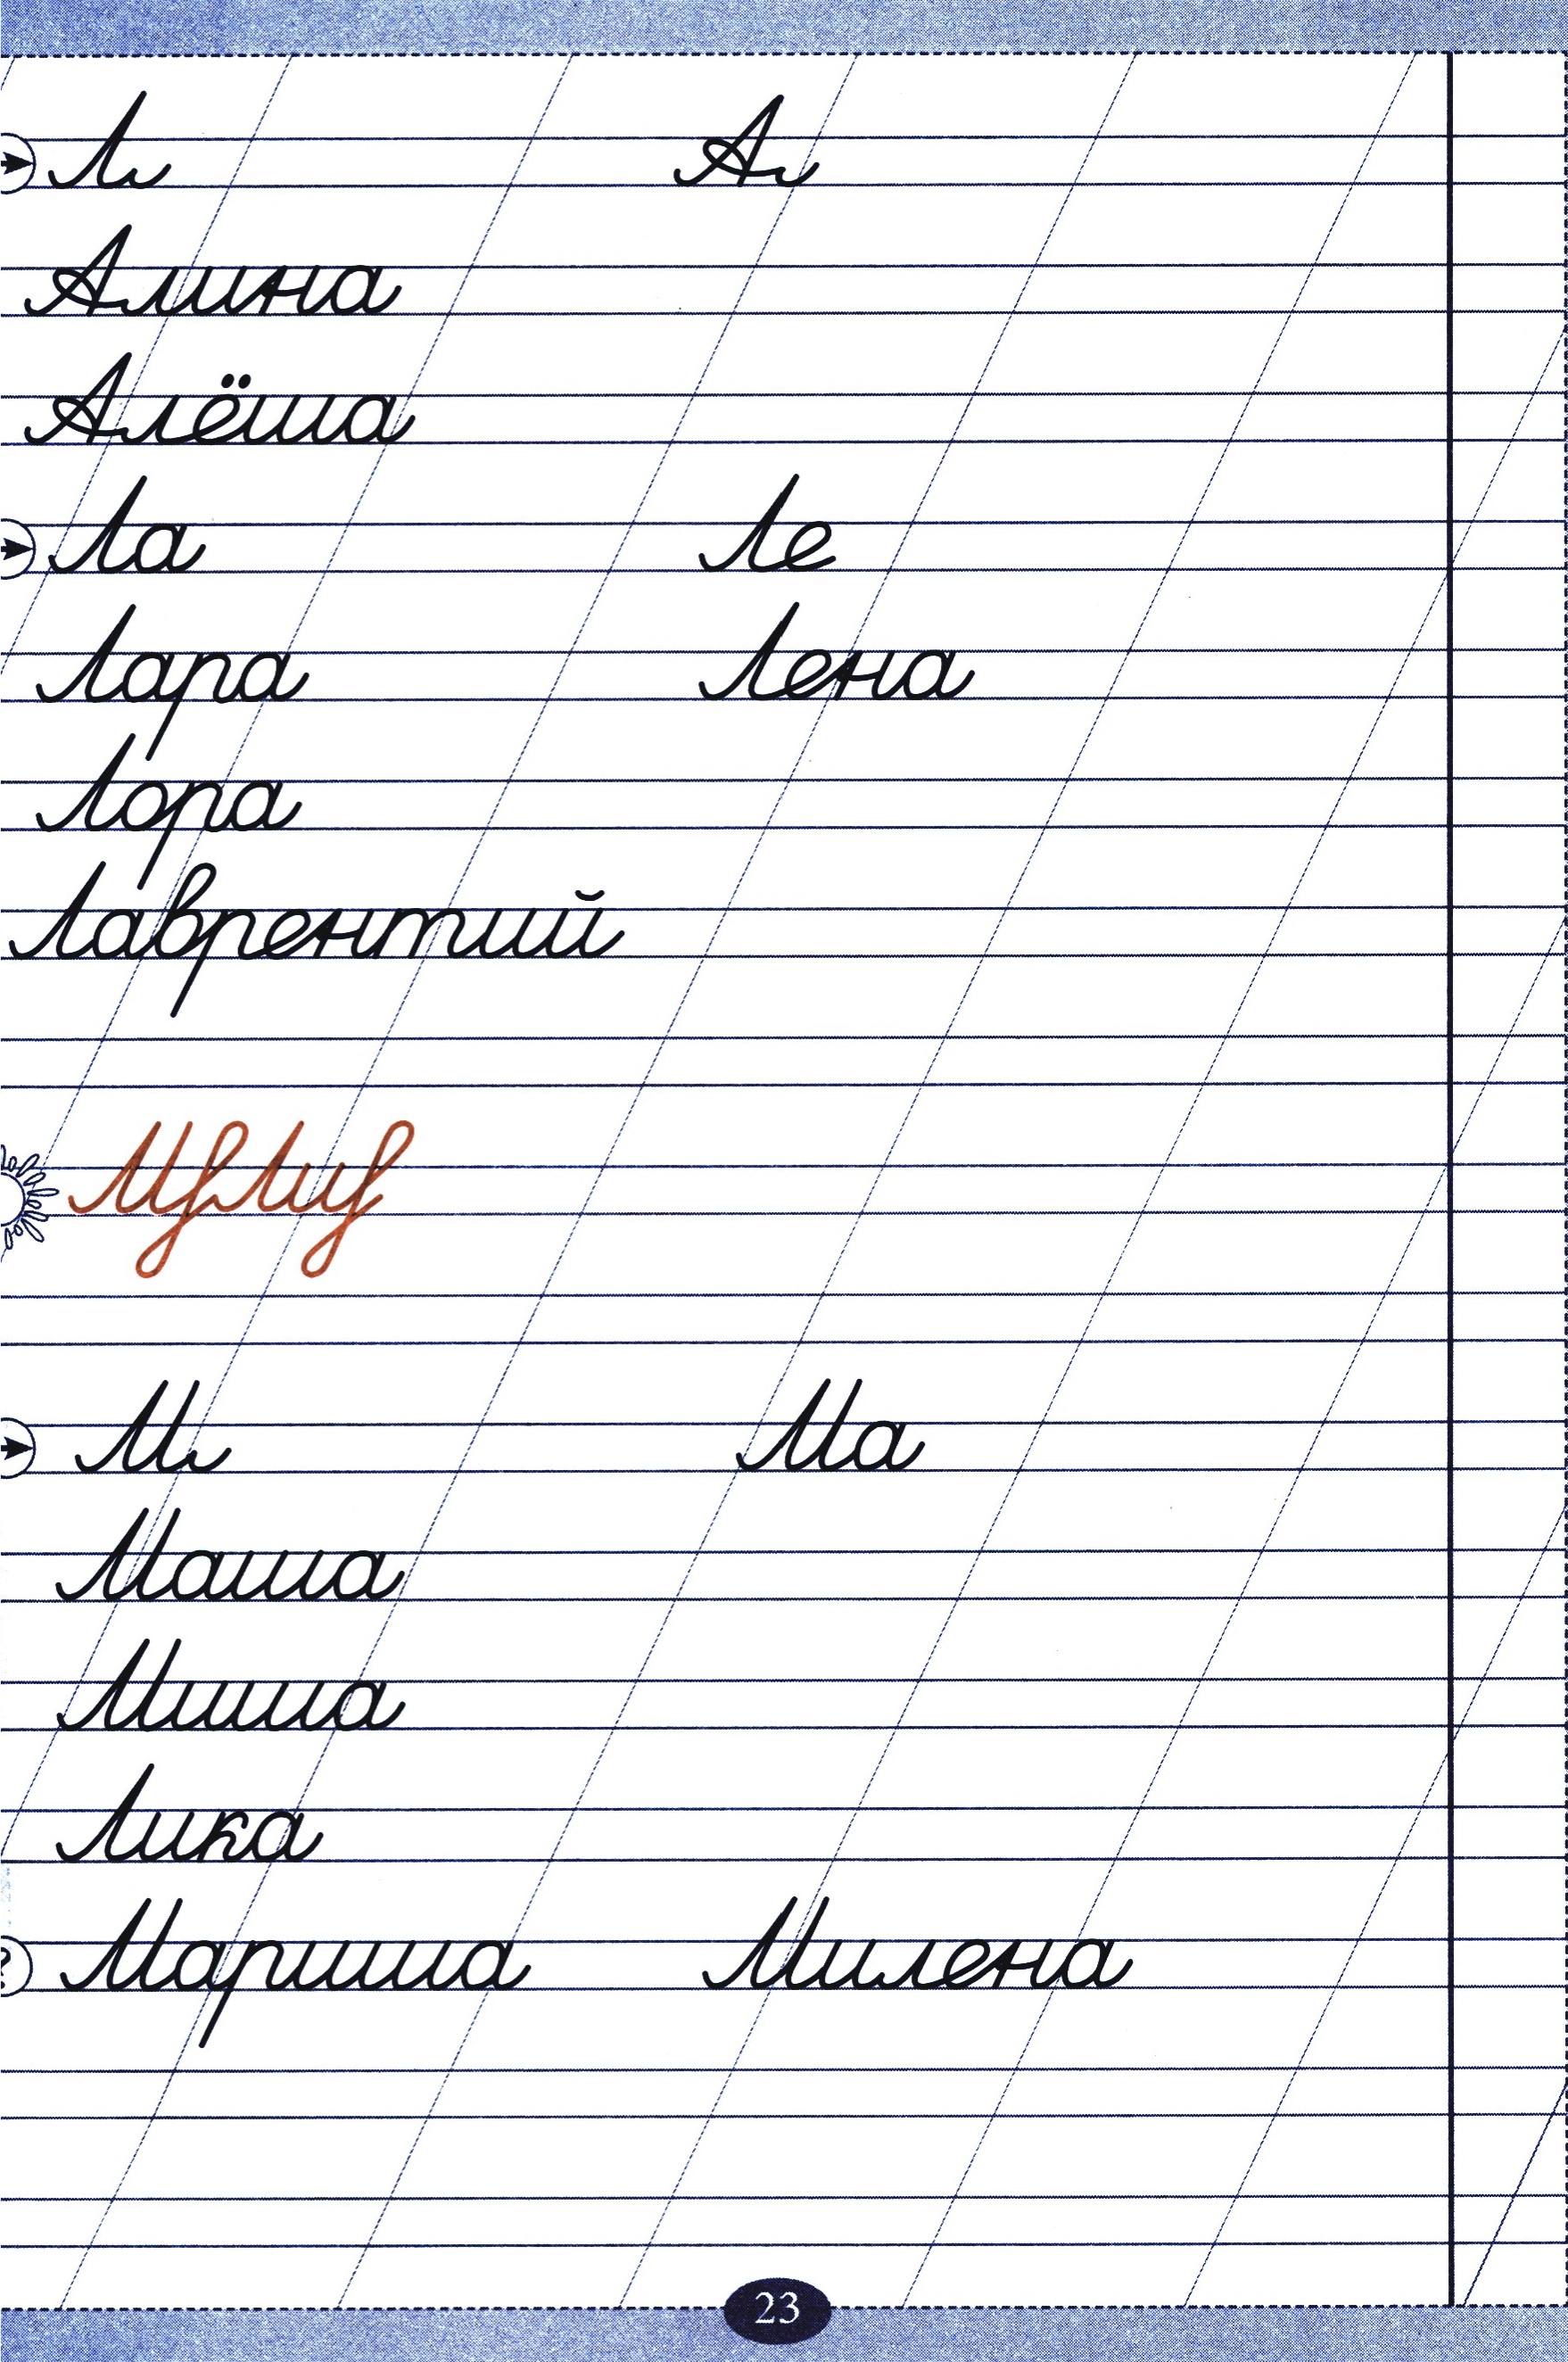 Л А
Алина
Алёша
Ла Ле
Лара Лена
Лора
Лаврентий
М Ма
Маша
Миша
Лика
? Мариша Милена
23